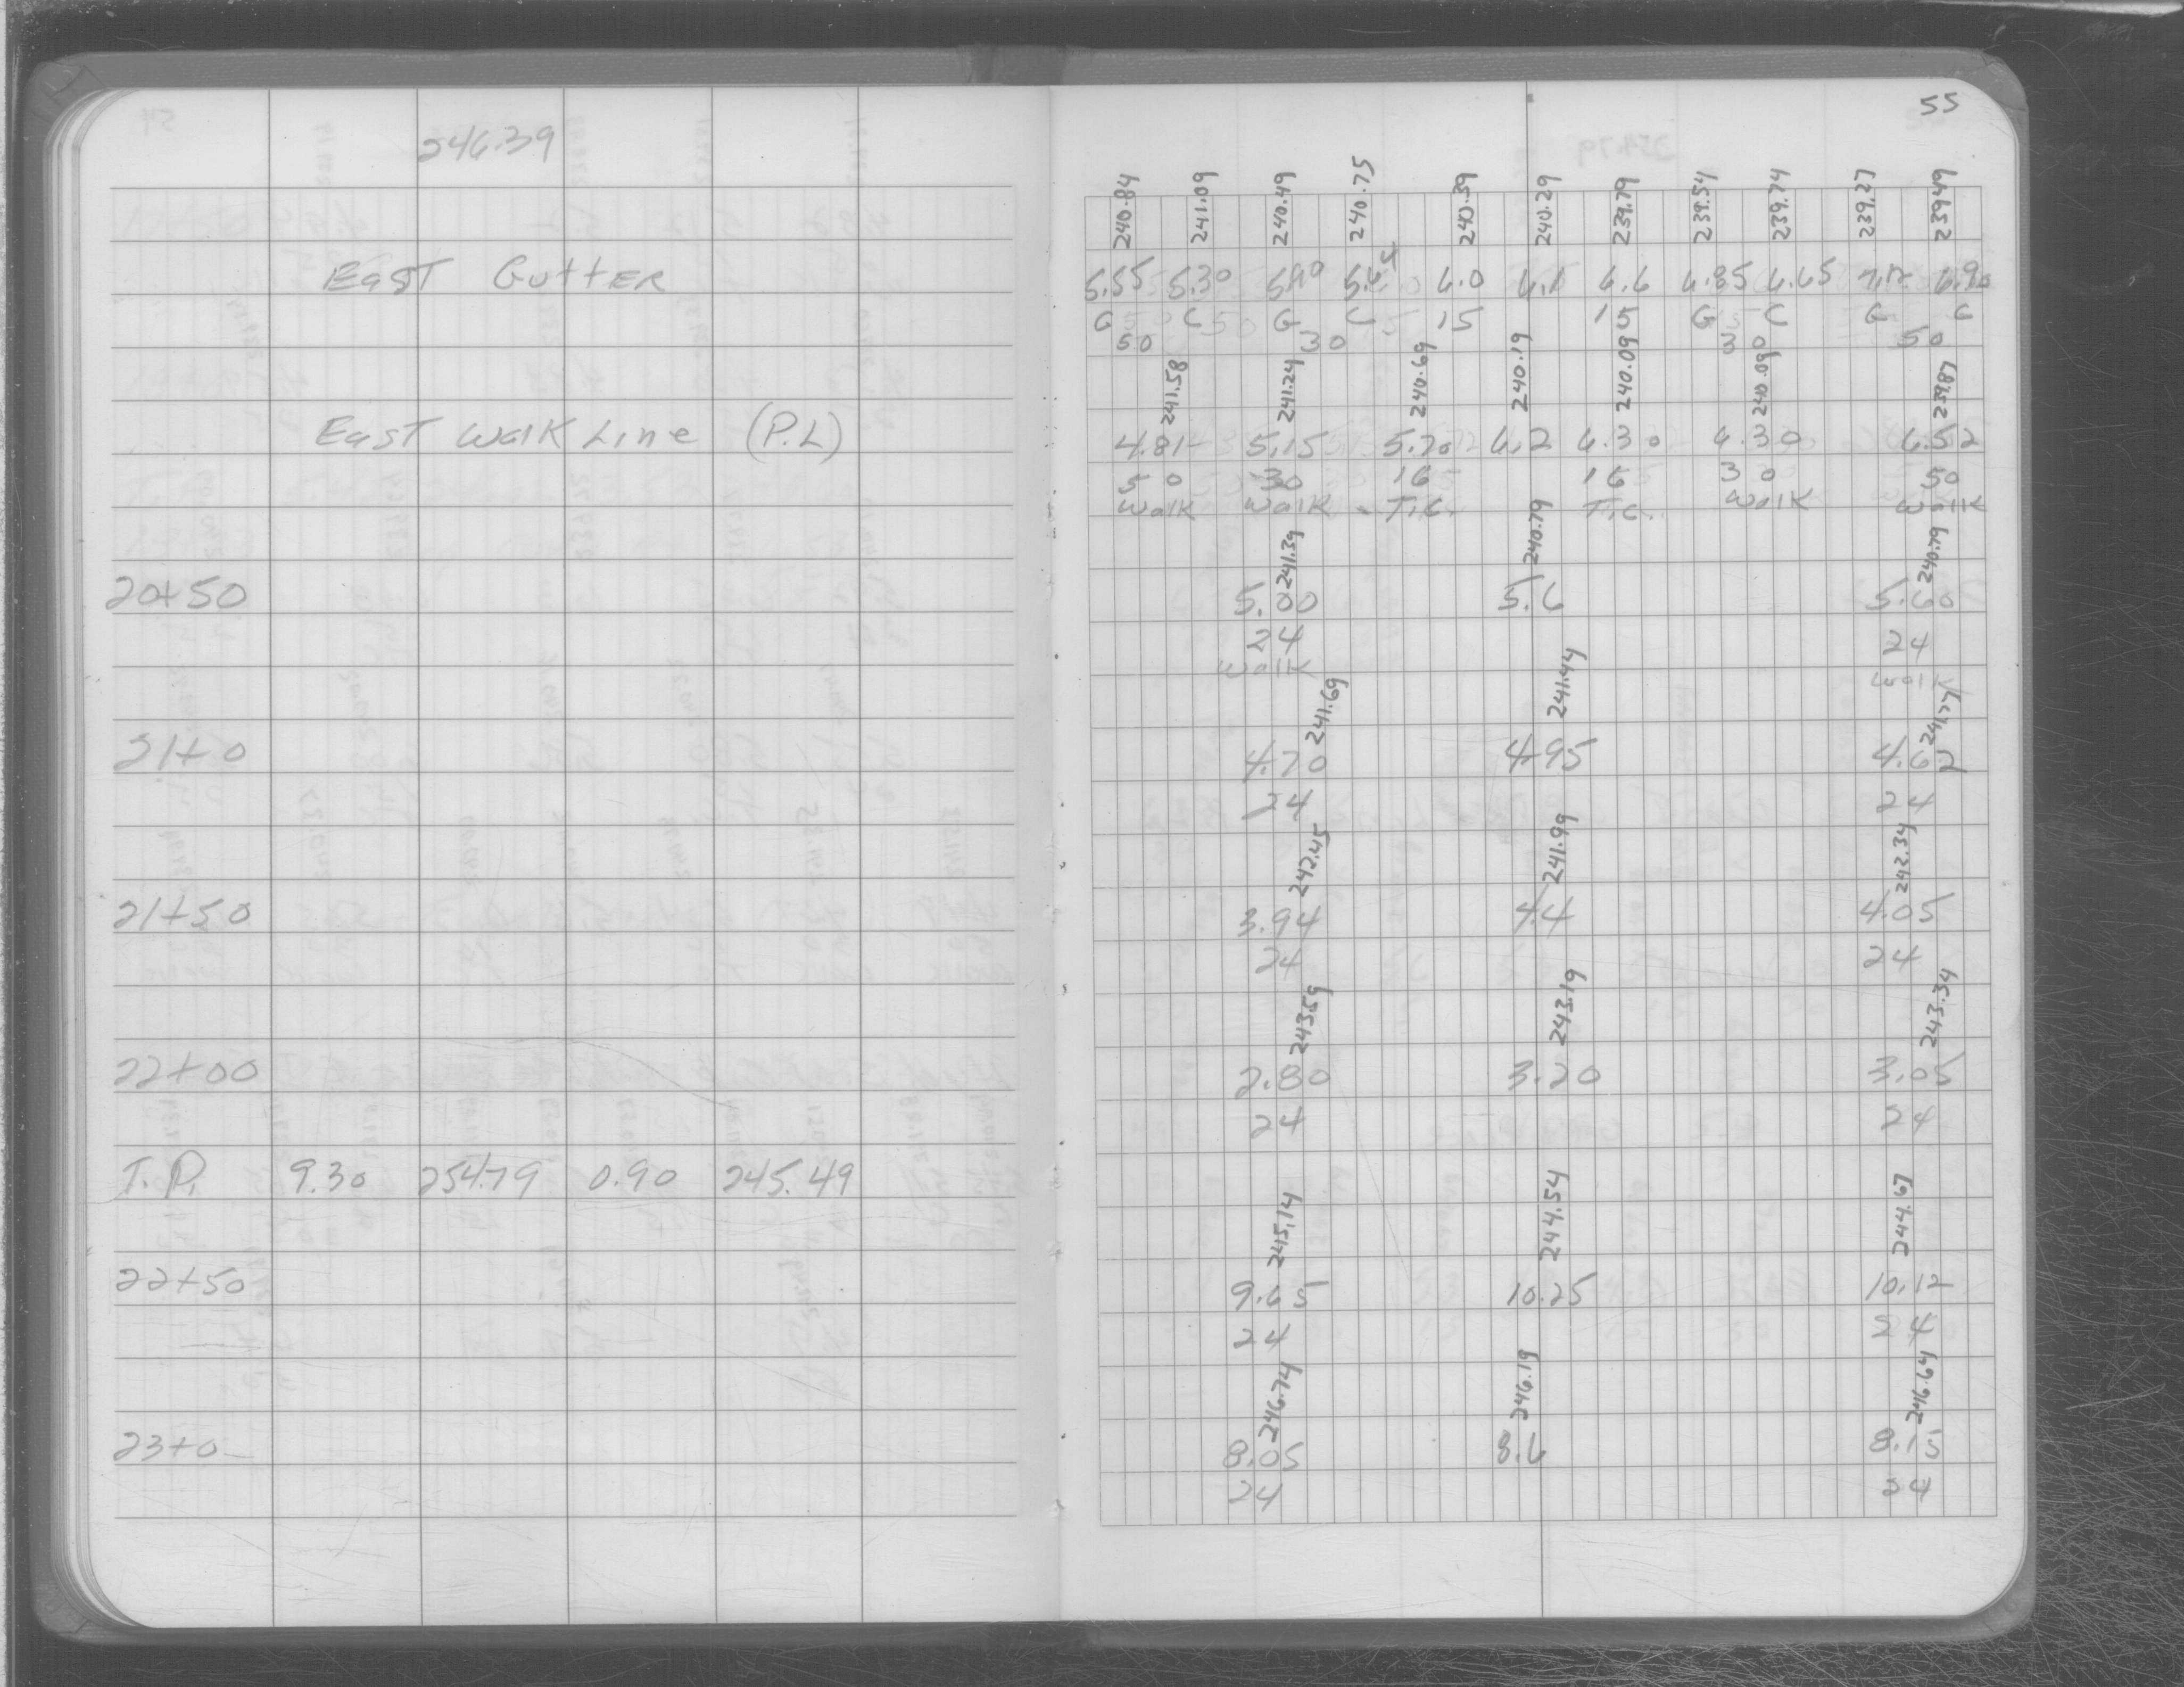 246.39
East Gutter
East Walk Line (P.L)
20+50
21+0
21+50
22+00
T.P. 9.30 254.79 0.90 245.49
22+50
23+0
55
240.84 241.09 240.49 240.75 240.39 240.29 239.79 239.54 239.74 239.27 239.49
5.55 5.30 5.90 5.64 6.0 6.1 6.6 6.85 6.65 7.12 6.90
G C G C 15 15 G C G C
50 30 30 50
241.58 241.24 240.69 240.19 240.09 240.09 239.87
4.81 5.15 5.70 6.2 6.30 6.30 6.52
50 30 16 16 30 50
Walk Walk T.C. T.C. Walk Walk
241.39 240.79 240.79
5.00 5.6 5.60
24 24
Walk Walk
241.69 241.44 241.77
4.70 4.95 4.62
24 24
242.45 241.99 242.34
3.94 4.4 4.05
24 24
243.59 243.19 243.34
2.80 3.20 3.05
24 24
245.14 244.54 244.67
9.65 10.25 10.12
24 24
246.74 246.19 246.64
8.05 8.6 8.15
24 24